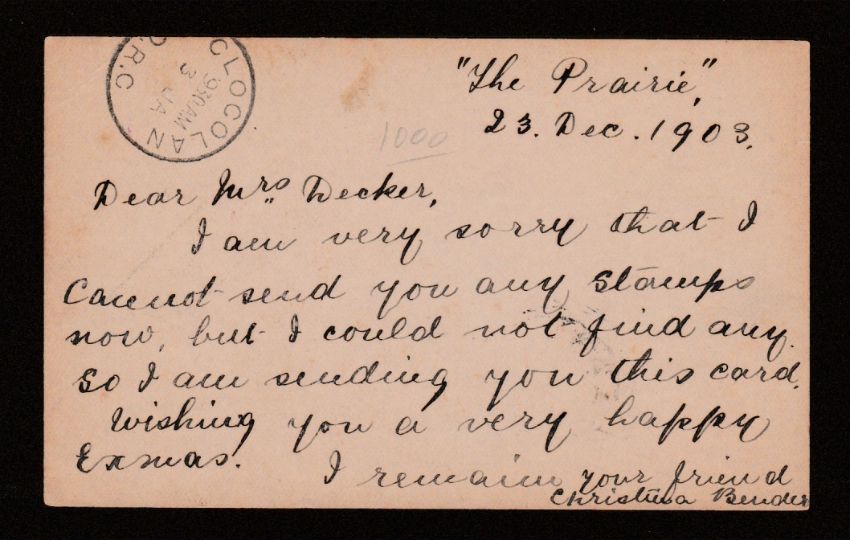 CLOCOLAN
O.R.C
930AM
3 JA
1000
"The Prairie",
23. Dec. 1903.
Dear Mrs Decker,
I am very sorry that I
Cannot send you any Stamps
now, but I could not find any.
so I am sending you this card.
Wishing you a very happy
Exmas.
I remain your friend
Christina Bender